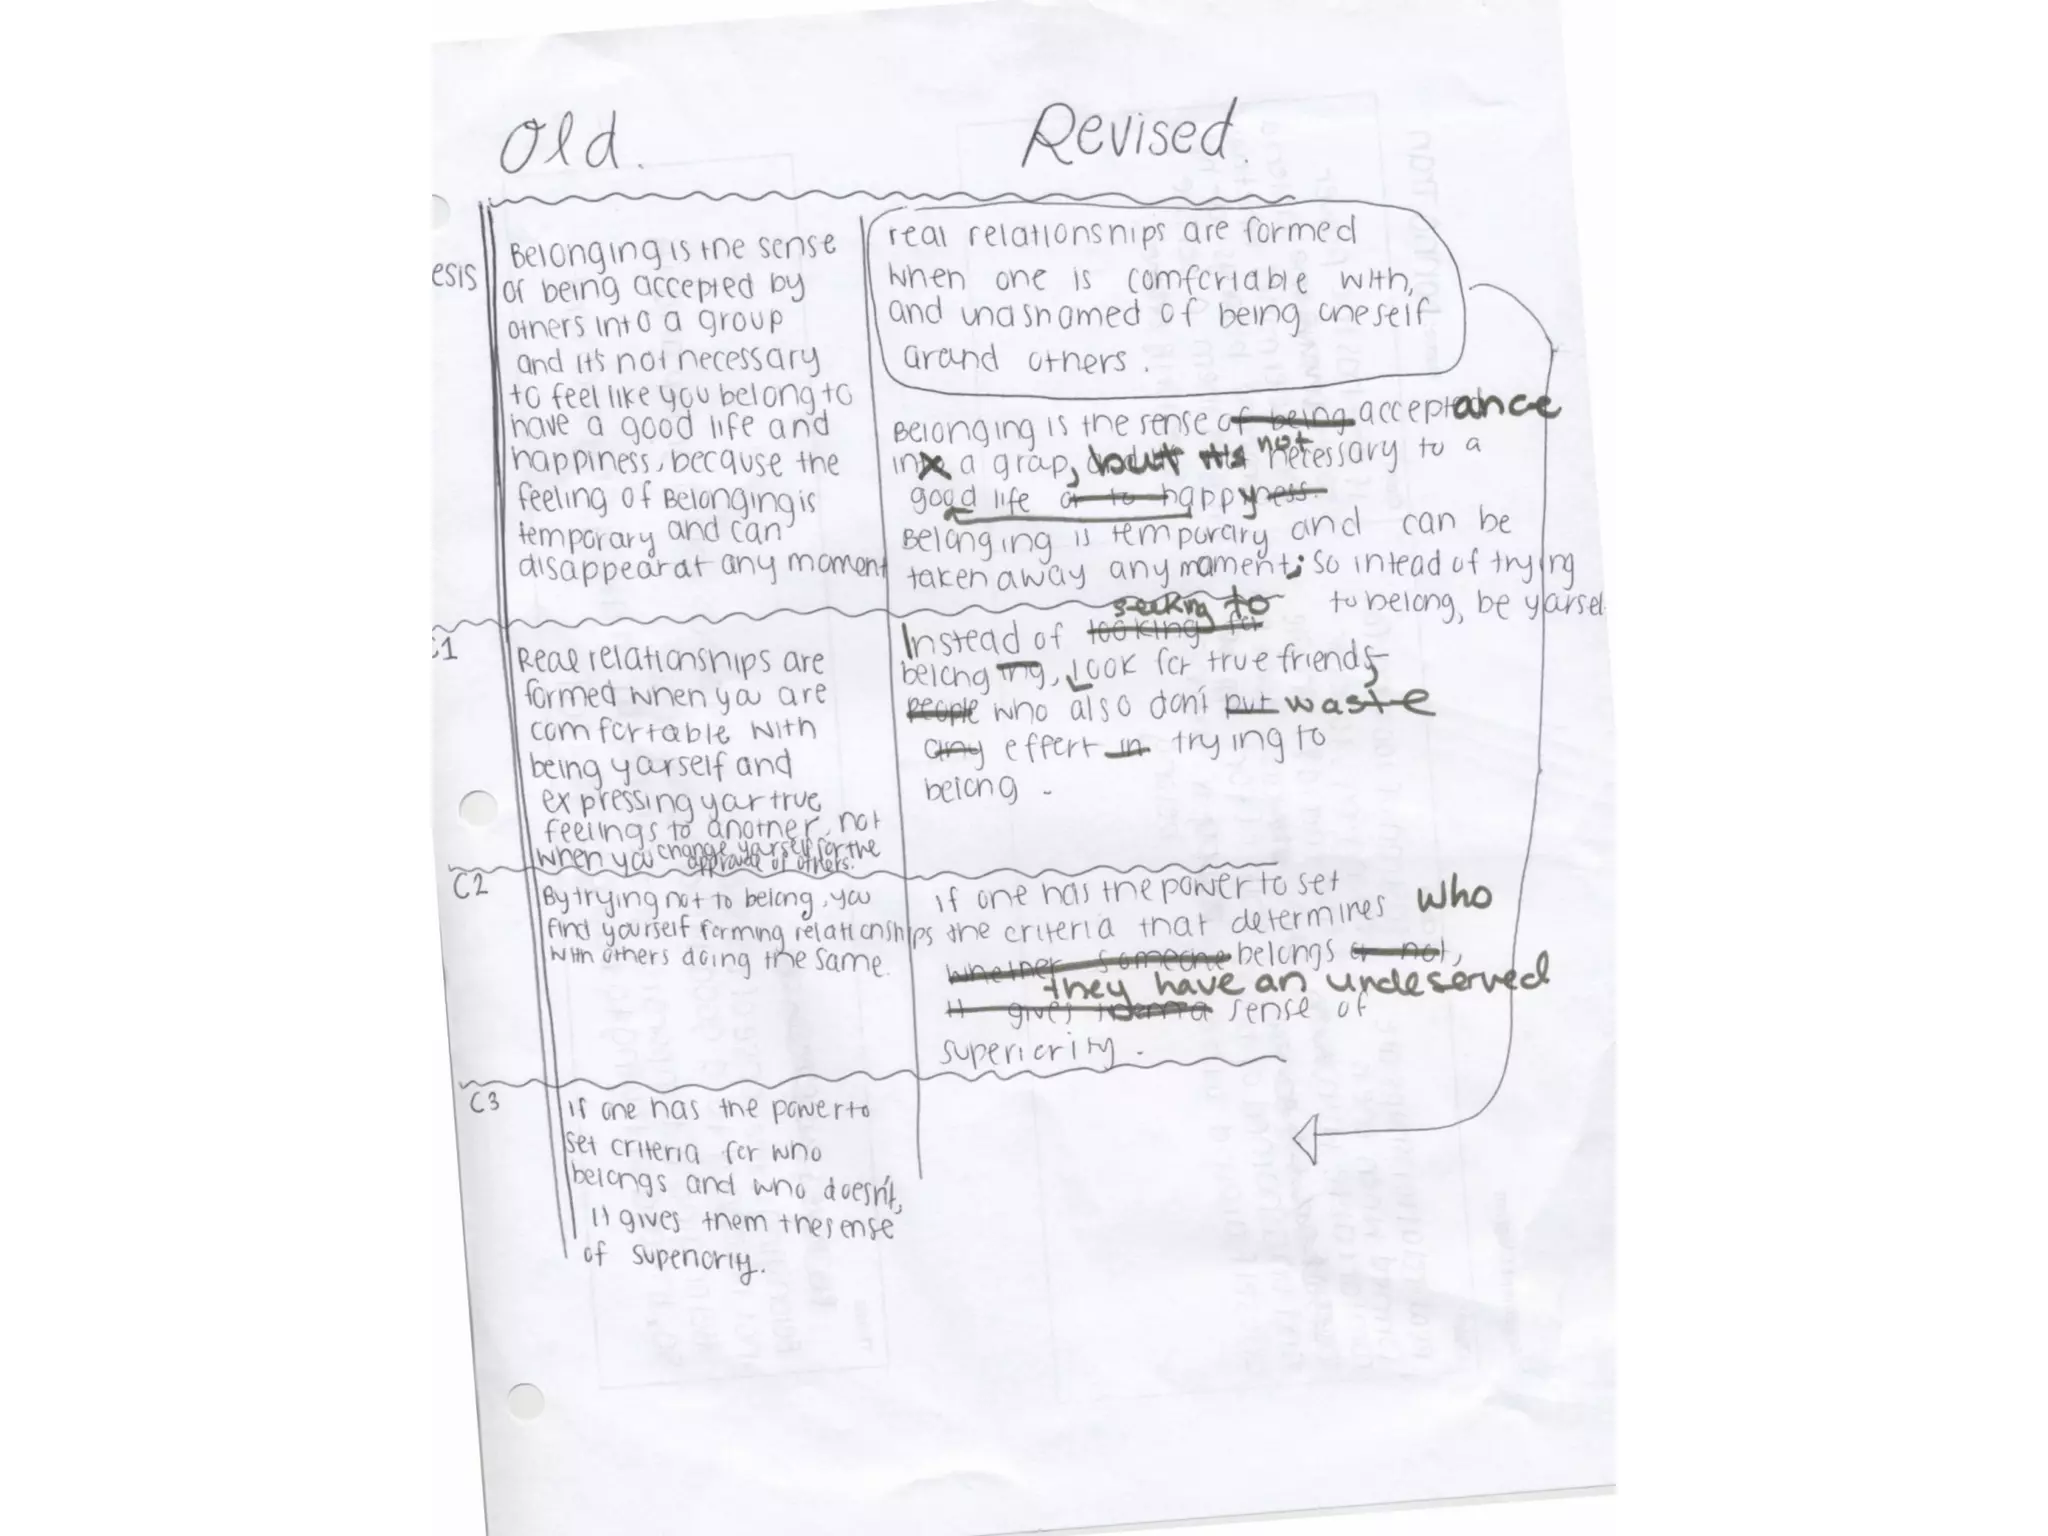 Old.
Revised.
esis
Belonging is the sense
of being accepted by
others into a group
and it's not necessary
to feel like you belong to
have a good life and
happiness, because the
feeling of Belonging is
temporary and can
disappear at any moment
real relationships are formed
when one is comfortable with,
and unashamed of being oneself
around others.
Belonging is the sense of being acceptance
into a group, but it's not necessary to a
good life or to happyness.
Belonging is temporary and can be
taken away any moment; so intead of trying
to belong, be yoursel
C1
Real relationships are
formed when you are
comfortable with
being yourself and
expressing your true
feelings to another, not
when you change yourself for the
approval of others.
seeking to
Instead of looking for
belonging, look for true friends
people who also don't put waste
any effort in trying to
belong.
C2
By trying not to belong, you
find yourself forming relationships
with others doing the same.
if one has the power to set
the criteria that determines who
whether someone belongs or not,
they have an undeserved
it gives them a sense of
superiority.
C3
if one has the power to
set criteria for who
belongs and who doesn't,
it gives them the sense
of superiority.